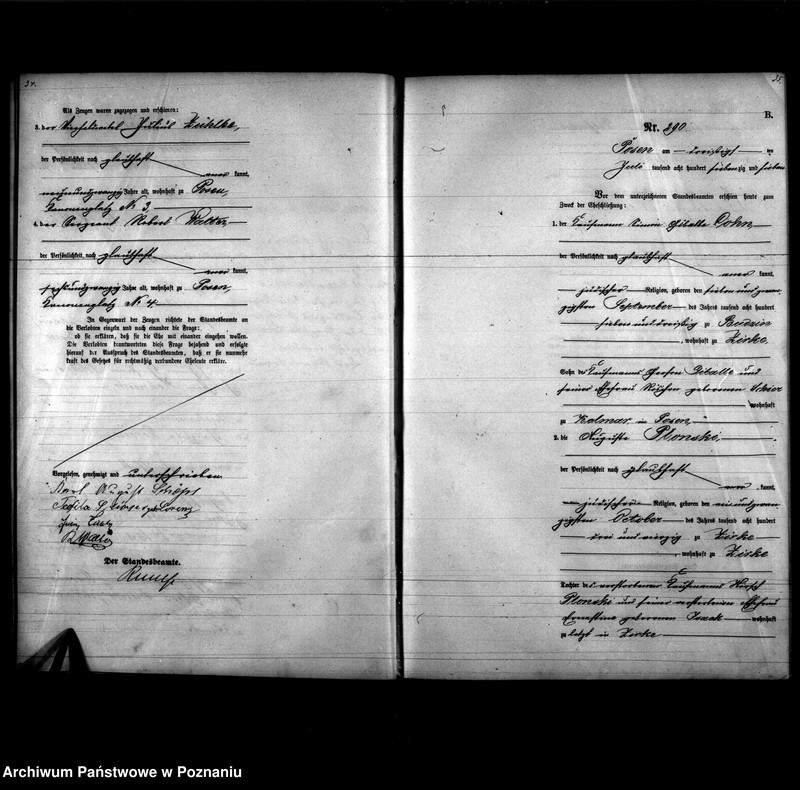 34.
Als Zeugen waren zugezogen und erschienen:
3. der Julius
der Persönlichkeit nach glaubhaft
kannt,
Jahre alt, wohnhaft zu Posen,
Kanonenplatz No 3
4. der Sergeant Robert Walter
der Persönlichkeit nach glaubhaft
kannt,
sechsundzwanzig Jahre alt, wohnhaft zu Posen,
Kanonenplatz No 4
In Gegenwart der Zeugen richtete der Standesbeamte an
die Verlobten einzeln und nach einander die Frage:
ob sie erklären, daß sie die Ehe mit einander eingehen wollen.
Die Verlobten beantworteten diese Frage bejahend und erfolgte
hierauf der Ausspruch des Standesbeamten, daß er sie nunmehr
kraft des Gesetzes für rechtmäßig verbundene Eheleute erkläre.
Vorgelesen, genehmigt und unterschrieben
Karl August
Der Standesbeamte.
35.
B.
Nr. 290
Posen am dreißigsten
Juli tausend acht hundert siebenzig und sieben
Vor dem unterzeichneten Standesbeamten erschienen heute zum
Zweck der Eheschließung:
1. der Kaufmann Cohn
der Persönlichkeit nach glaubhaft
kannt,
jüdischer Religion, geboren den sieben und zwan-
zigsten September des Jahres tausend acht hundert
sieben und dreißig zu Budzin
, wohnhaft zu Zirke
Sohn des Kaufmanns
seiner Ehefrau geborenen
wohnhaft
zu Kolmar in Posen
2. die Auguste Plonski,
der Persönlichkeit nach glaubhaft
kannt,
jüdischer Religion, geboren den neun und zwan-
zigsten October des Jahres tausend acht hundert
drei und vierzig zu Zirke
, wohnhaft zu Zirke
Tochter des verstorbenen Kaufmanns Hirsch
Plonski und seiner verstorbenen Ehefrau
Ernestine geborenen Isaak wohnhaft
zuletzt in Zirke
Archiwum Państwowe w Poznaniu